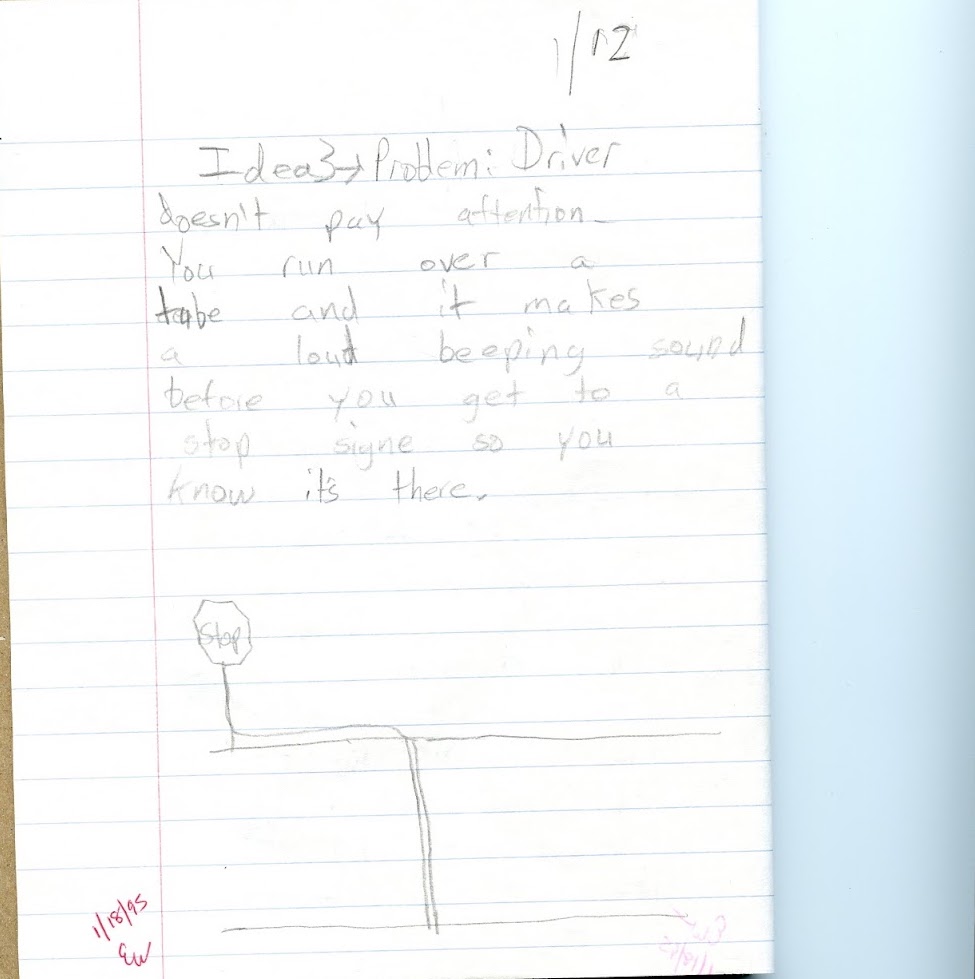 1/12
Idea3→Problem: Driver
doesn't pay attention-
You run over a
tube and it makes
a loud beeping sound
before you get to a
stop signe so you
know it's there.
Stop
1/18/95
EW